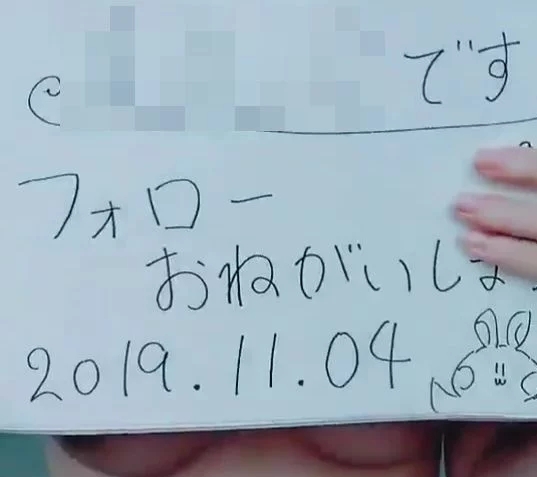 @ です
フォロー
おねがいしま
2019.11.04